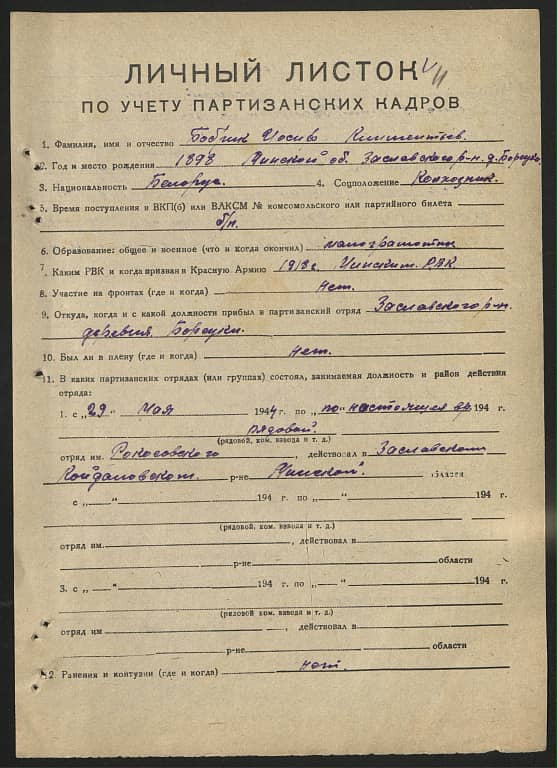 ЛИЧНЫЙ ЛИСТОК
ПО УЧЕТУ ПАРТИЗАНСКИХ КАДРОВ
1. Фамилия, имя и отчество Бобрик Иосиф Климентьев.
2. Год и место рождения 1898 Минской об. Заславского р-н. д.
3. Национальность Белорус. 4. Соцположение Колхозник.
5. Время поступления в ВКП(б) или ВЛКСМ № комсомольского или партийного билета
б/п.
6. Образование: общее и военное (что и когда окончил) малограмотны
7. Каким РВК и когда призван в Красную Армию 1918 г. Минским. РВК.
8. Участие на фронтах (где и когда) нет.
9. Откуда, когда и с какой должности прибыл в партизанский отряд Заславского р-н.
деревня.
10. Был ли в плену (где и когда) нет.
11. В каких партизанских отрядах (или группах) состоял, занимаемая должность и район действия
отряда:
1. с „29" Мая 1944 г. по „по" настоящея вр. 194 г.
рядовой.
(рядовой, ком. взвода и т. д.)
отряд им. Рокосовского, действовал в Заславском
Койдановском. р-не Минской. области
с „ — " 194 г. по „ — " 194 г.
(рядовой, ком. взвода и т. д.)
отряд им. , действовал в
р-не области
3. с „ — " 194 г. по „ — " 194 г.
(рядовой, ком. взвода и т. д.)
отряд им , действовал в
р-не области
12. Ранения и контузии (где и когда) нет.